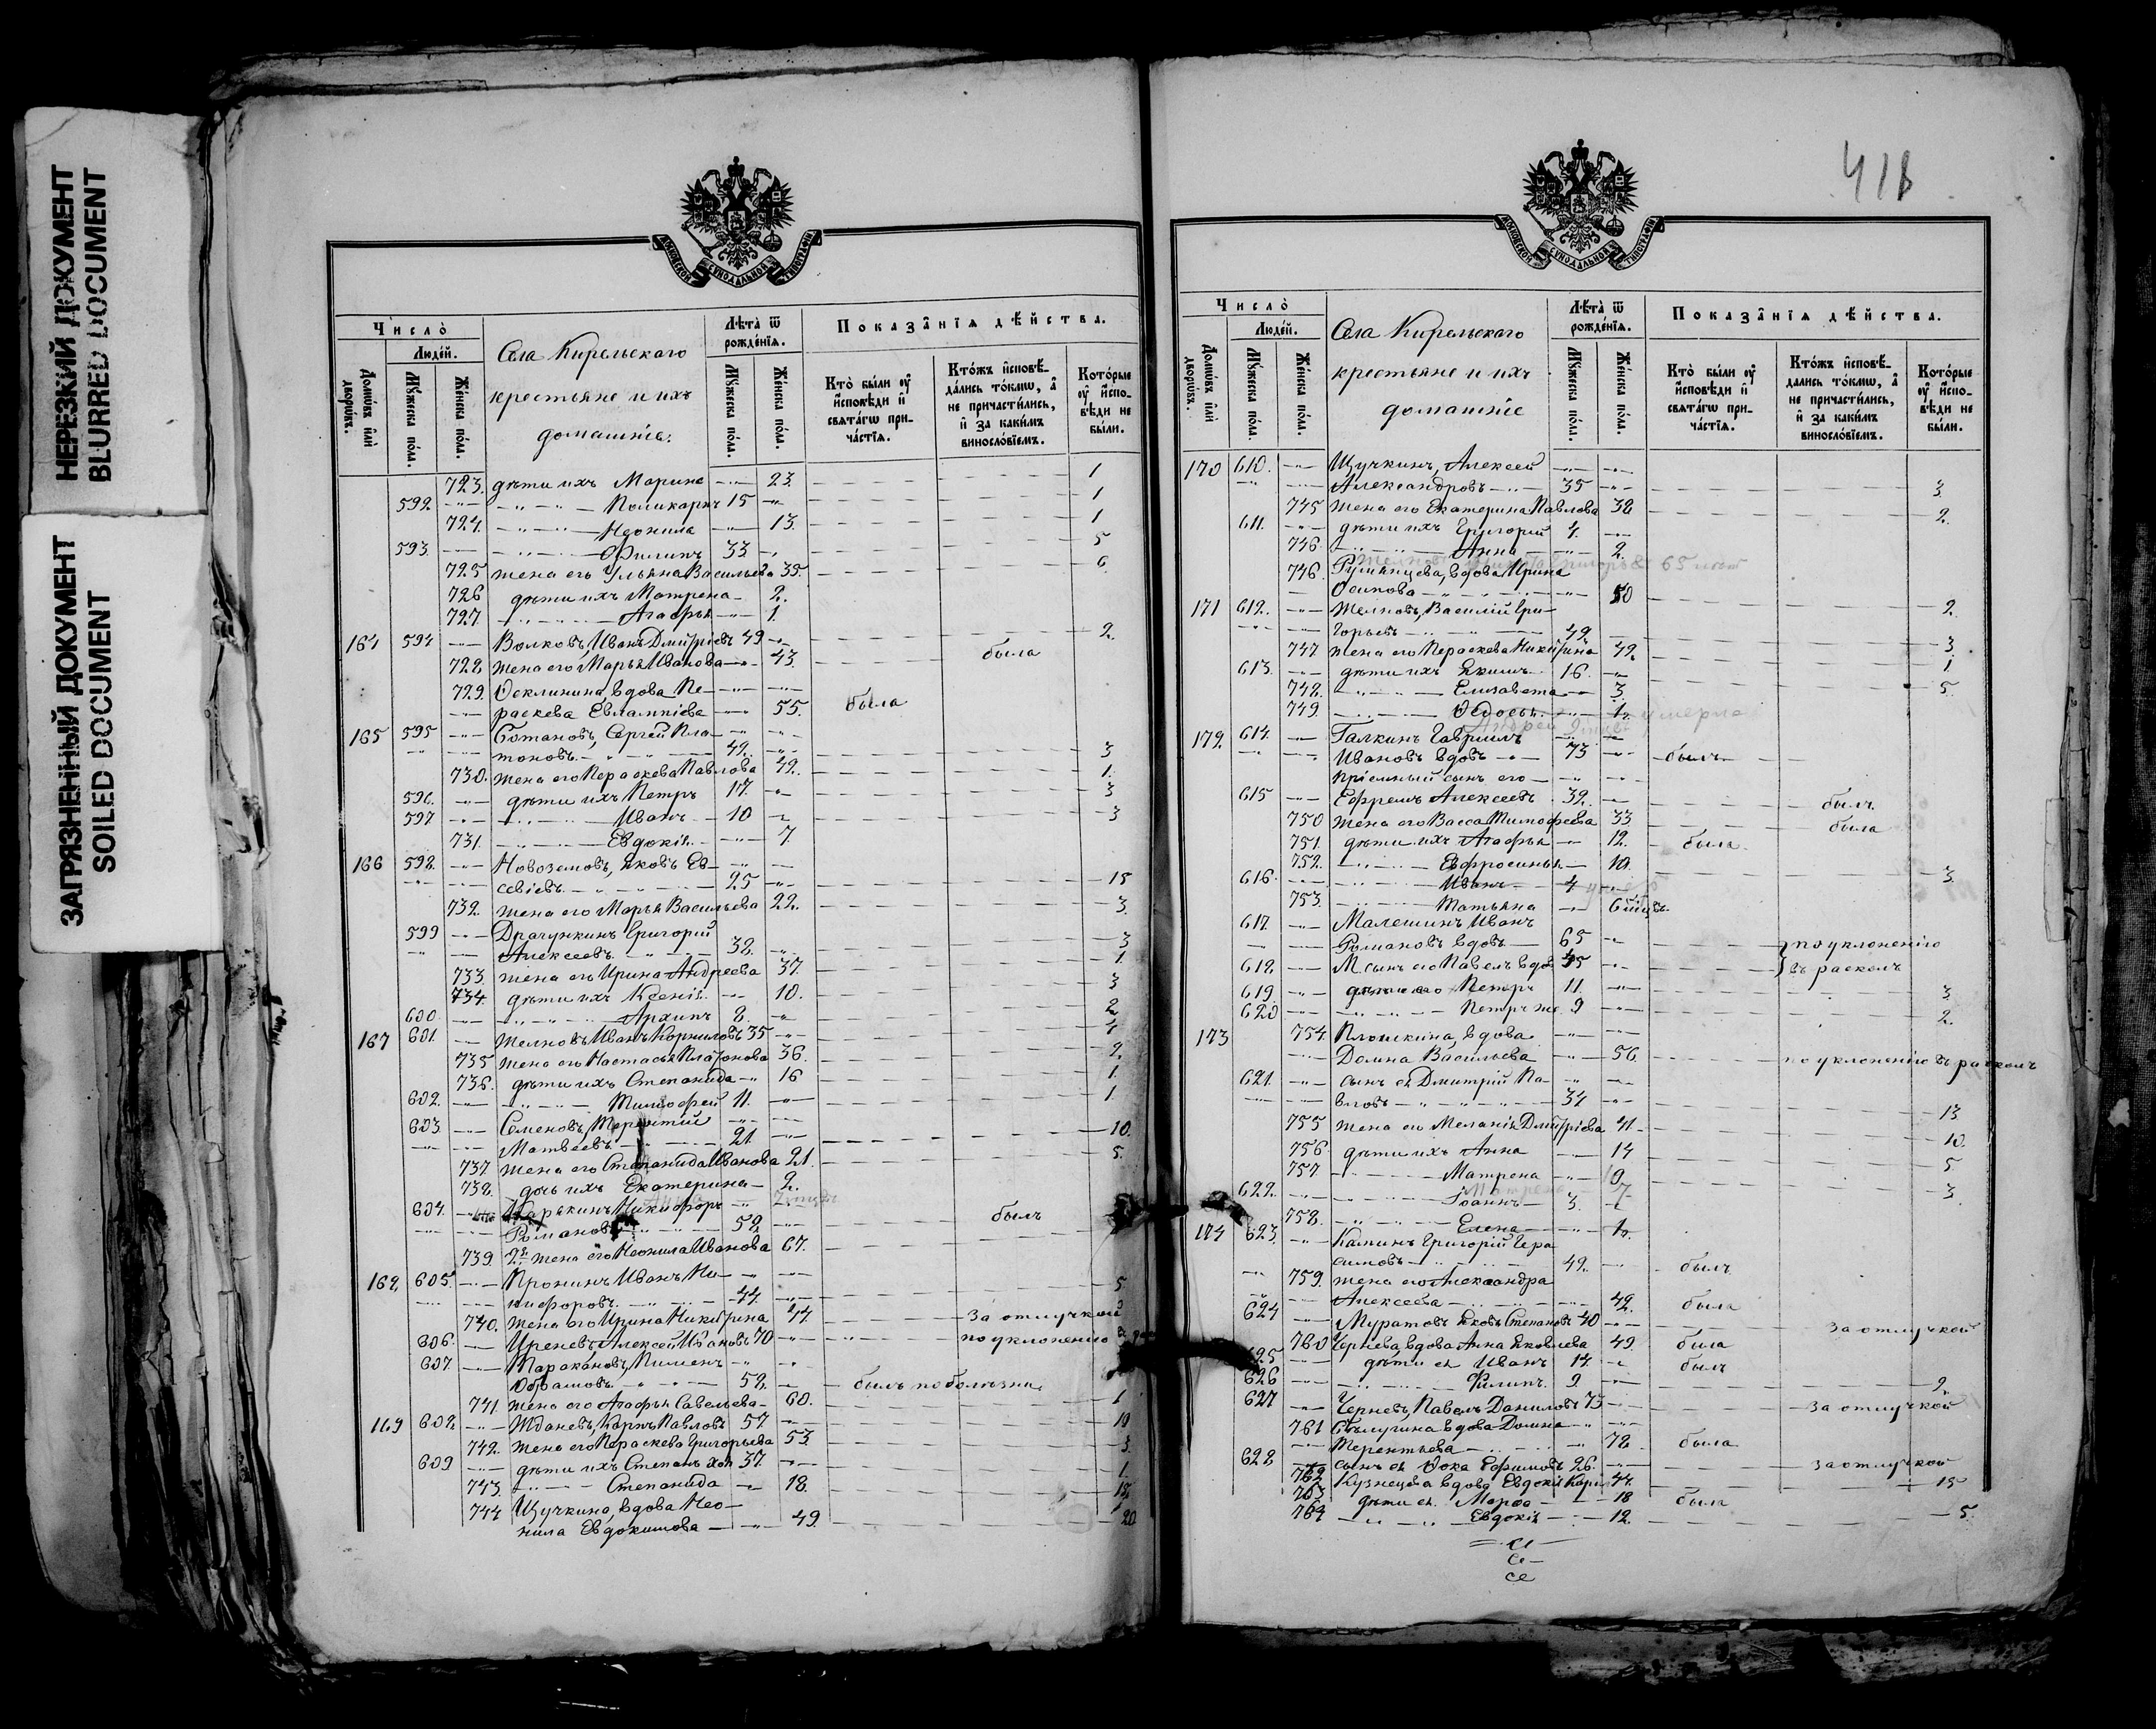 НЕРЕЗКИЙ ДОКУМЕНТ
BLURRED DOCUMENT
ЗАГРЯЗНЕННЫЙ ДОКУМЕНТ
SOILED DOCUMENT
МОСКОВСКОЙ СУНОДАЛЬНОЙ ТИПОГРАФІИ
Число̀
Людей.
Домѡвъ и҆лѝ дворѡвъ.
Мꙋжеска пола.
Женска пола.
Села Кирельскаго
крестьяне и ихъ
домашніе.
Лѣта̀ ѿ рожденїѧ.
Мꙋжеска пола.
Женска пола.
Показанїѧ дѣйства.
Кто̀ были ᲂу҆ и҆сповѣди и҆ свѧтагѡ причастїѧ.
Ктожъ и҆сповѣдались токмѡ, а҆ не причастились, и҆ за какимъ винословїемъ.
Которые ᲂу҆ и҆сповѣди не были.
723. дѣти ихъ Марина 23. 1
592 Поликарпъ 15 1
724. Неонила 13. 1
593. Филипъ 33 5
725 жена его Ульяна Васильева 35. 6
726 дѣти ихъ Матрена 2.
727. Агафья 1.
164 594 Волковъ, Иванъ Дмитріевъ 49 2.
728. жена его Марья Иванова 43. была
729. Феклинина, вдова Пе-
раскева Евлампіева 55. была
165 595 Ботановъ, Сергей Пла-
тоновъ. 42. 3
730. жена его Пераскева Павлова 42. 1.
596. дѣти ихъ Петръ 17. 3
597 Иванъ 10 3
731. Евдокія. 7.
166 598. Новоземовъ, Яковъ Ев-
севіевъ. 25 15
732. жена его Марья Васильева 22. 3.
599 Драгункинъ Григорій
Алексеевъ. 32. 3
733. жена его Ирина Андреева 37. 1.
734. дѣти ихъ Ксенія. 10. 3
600. Архипъ 8. 2
167 601. Желновъ Иванъ Корниловъ 35 4
735 жена его Настасья Платонова 36. 2.
736. дѣти ихъ Степанида 16 1.
602. Тимофей 11. 1
603. Семеновъ, Терентій
Матвеевъ 21 10.
737. жена его Степанида Иванова 21. 5.
738. дочь ихъ Екатерина 2.
604. Карькинъ Никифоръ
Романовъ 52. былъ
739. 2я жена его Неонила Иванова 67.
168. 605. Пронинъ Иванъ Ни-
кифоровъ. 44. 5
740. жена его Ирина Никитина 44. за отлучкой
606. Иреневъ, Алексей Ивановъ 70 по уклоненію
607. Таракановъ, Пименъ
Абрамовъ 52. былъ по болѣзни
741. жена его Агафья Савельева 60. 1
169 608. Ждановъ, Карпъ Павловъ 57 10
742. жена его Пераскева Григорьева 53. 3.
609 дѣти ихъ Степанъ хол 37. 1
743. Степанида 18. 15
744 Щучкина, вдова Нео-
нила Евдокимова 49. 20
418
МОСКОВСКОЙ СУНОДАЛЬНОЙ ТИПОГРАФІИ
Число̀
Людей.
Домѡвъ и҆лѝ дворѡвъ.
Мꙋжеска пола.
Женска пола.
Села Кирельскаго
крестьяне и ихъ
домашніе
Лѣта̀ ѿ рожденїѧ.
Мꙋжеска пола.
Женска пола.
Показанїѧ дѣйства.
Кто̀ были ᲂу҆ и҆сповѣди и҆ свѧтагѡ причастїѧ.
Ктожъ и҆сповѣдались токмѡ, а҆ не причастились, и҆ за какимъ винословїемъ.
Которые ᲂу҆ и҆сповѣди не были.
170 610. Щучкинъ, Алексей
Александровъ 35 3
745 жена его Екатерина Павлова 38 2.
611. дѣти ихъ Григорій 4.
746. Анна 2.
65 лет
746. Румянцева, вдова Ирина
Осипова 50
171 612. Желновъ, Василій Гри-
горьевъ 49. 2.
747 жена его Пераскева Никитина 49. 3
613. дѣти ихъ Якимъ 16. 1
748. Елизавета 3. 5.
749. Федосья. 1. умерла
172. 614. Галкинъ Гавриилъ
Ивановъ вдовъ 73 былъ
пріемный сынъ его
615 Ефремъ Алексеевъ 39. былъ
750 жена его Васса Тимофеева 33. была
751. дѣти ихъ Агафья 12. была
752. Евфросинья 10.
616. Иванъ 4 3.
753. Татьяна 6 мцев.
617. Малешинъ Иванъ
Романовъ вдовъ 65 по уклоненію
618 сынъ его Павелъ вдов 35 въ расколъ
619. дѣти его Петръ 11. 3
620 Петръ же 9 2.
173 754. Плошкина, вдова
Домна Васильева 56. по уклоненію въ расколъ
621. сынъ ея Дмитрій Па-
вловъ 34
755 жена его Меланія Дмитріева 41. 13
756. дѣти ихъ Анна 14 10.
757 Матрена 9 5
622. Іоаннъ 3. 3.
758. Елена 1.
174 623. Каминъ Григорій Гера
симовъ 49. былъ
759. жена его Александра
Алексеева 42. была
624 Муратовъ Яковъ Степановъ 40 за отлучкой
760 Чернева, вдова Анна Яковлева 49. была
625 дѣти ея Иванъ 14. былъ
626 Филипъ. 9. 2
627 Черневъ, Павелъ Даниловъ 73 за отлучкой
761 Бѣлугина вдова Домна
Терентьева 72. была
628 сынъ ея Фока Ефимовъ 26. за отлучкой
762 Кузнецова вдова Евдокія Карп. 44. 15
763 дѣти ея Марфа 18 была
764 Евдокія 12. 5.